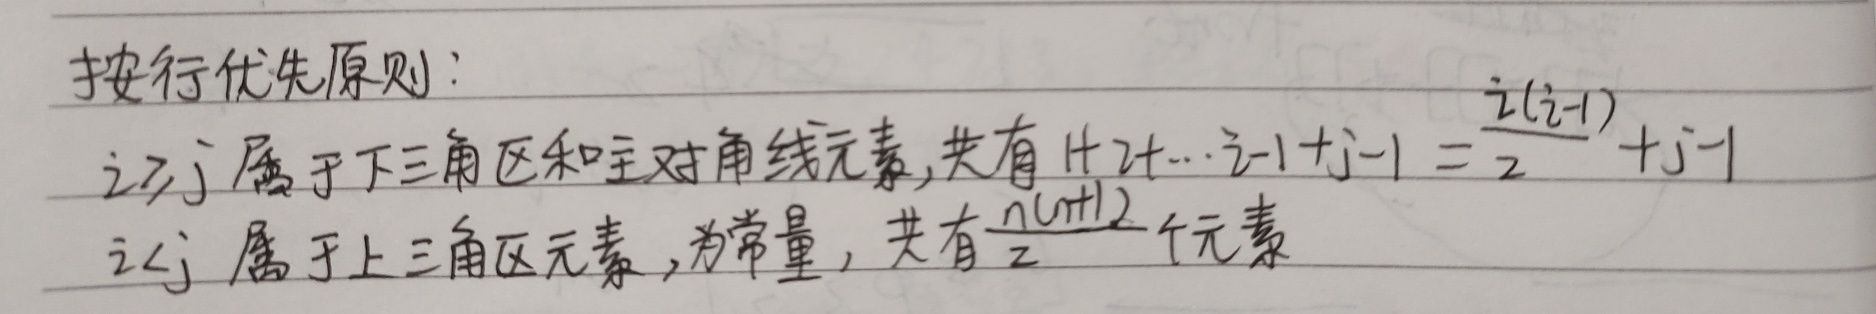 按行优先原则:
i≥j 属于下三角区和主对角线元素,共有 1+2+…i-1+j-1 = i(i-1)/2 +j-1
i<j 属于上三角区元素,为常量,共有 n(n+1)/2 个元素